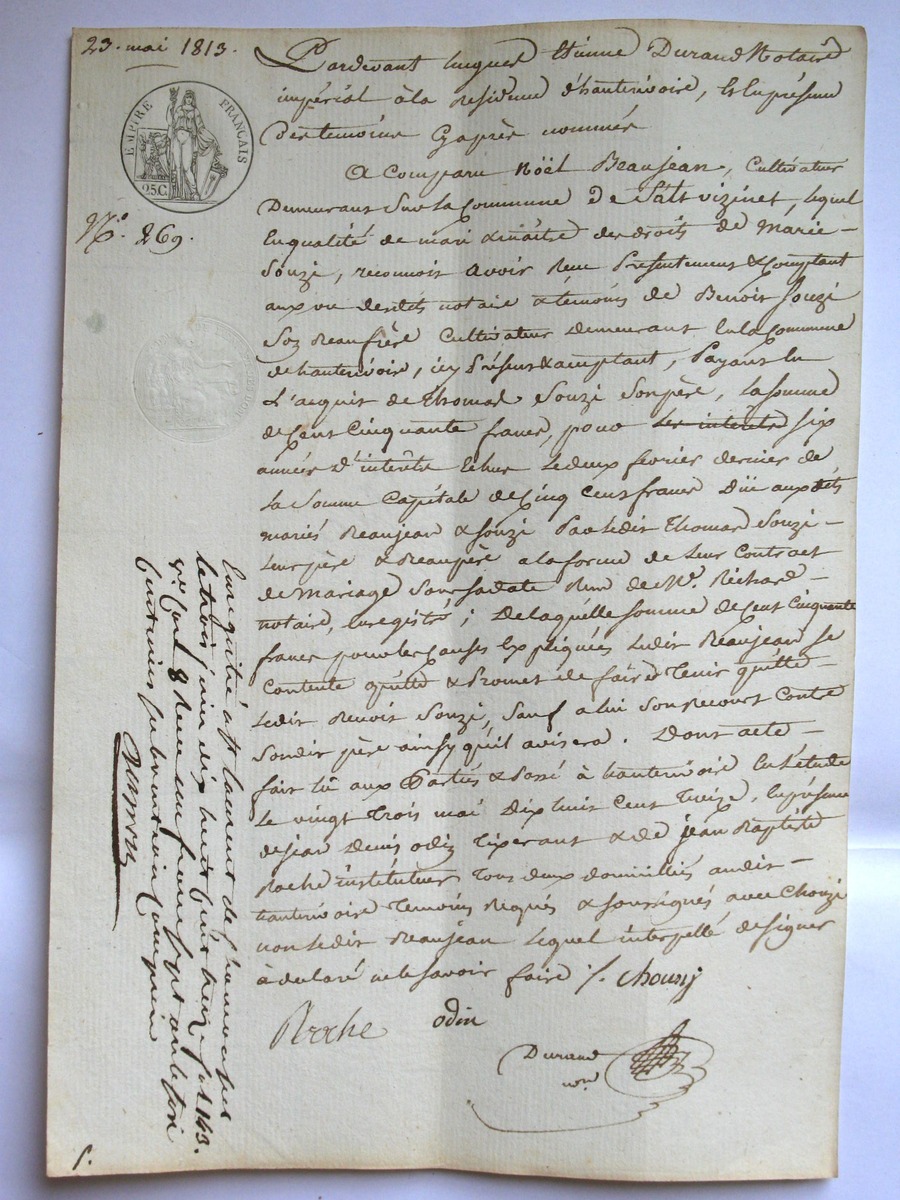 23. mai 1813.
EMPIRE FRANÇAIS
25 C.
N.º 269.
Pardevant hugues Etienne Durand Notaire
impérial à la residence d'hauterivoire, et En présence
Des temoins Cy après nommés
A Comparu Noël Beaujean, Cultivateur
Demeurant Sur La Commune De Salt vizinet, lequel
En qualité de mari & maître des droits de Marie
Souzi, reconnoit avoir Recu Présentement & Comptant
aux vu desdits notaire & témoins de Benoit Souzi
Son Beaufrère Cultivateur Demeurant En la Commune
de hauterivoire, icy Présent & acceptant, Payant En
L'acquit de Thomas Souzi Son père, La Somme
de Cent Cinquante francs, pour les interets Six
années D'interets Echus Le deux fevrier dernier de
La Somme Capitale de Cinq Cens francs Düe aux dits
mariés Beaujean & Souzi Par Ledit Thomas Souzi
Leur père & Beaupère a la forme de Leur Contract
de Mariage Sous Sa date Recu de M.e Richard
notaire, Enregistré; De laquelle Somme de Cent Cinquante
francs pour les Causes Expliquées Ledit Beaujean Se
Contente quitte & Promet de faire Tenir quitte
Ledit Benoit Souzi, Sauf a lui Son Recours Contre
Son dit père ainsy qu'il avisera. Dont acte
fait Lu aux Parties & Passé à hauterivoire En L'étude
Le vingt Trois mai Dix huit Cent Treize, En présence
de jean Denis odin Tixerant & de jean Baptiste
Roche instituteur Tous deux domiciliés audit
hauterivoire Temoins Requis & Soussignés avec Chouzi
non Ledit Beaujean Lequel interpellé de Signer
à declaré ne le Savoir faire /. Chouzy
Roche odin
Durand
nore
Enregistré à St Laurent de Chamousset
le trois juin dix huit cent treize f.o 143.
r.o Case 8 Recu un franc dix
centimes subvention Comprise